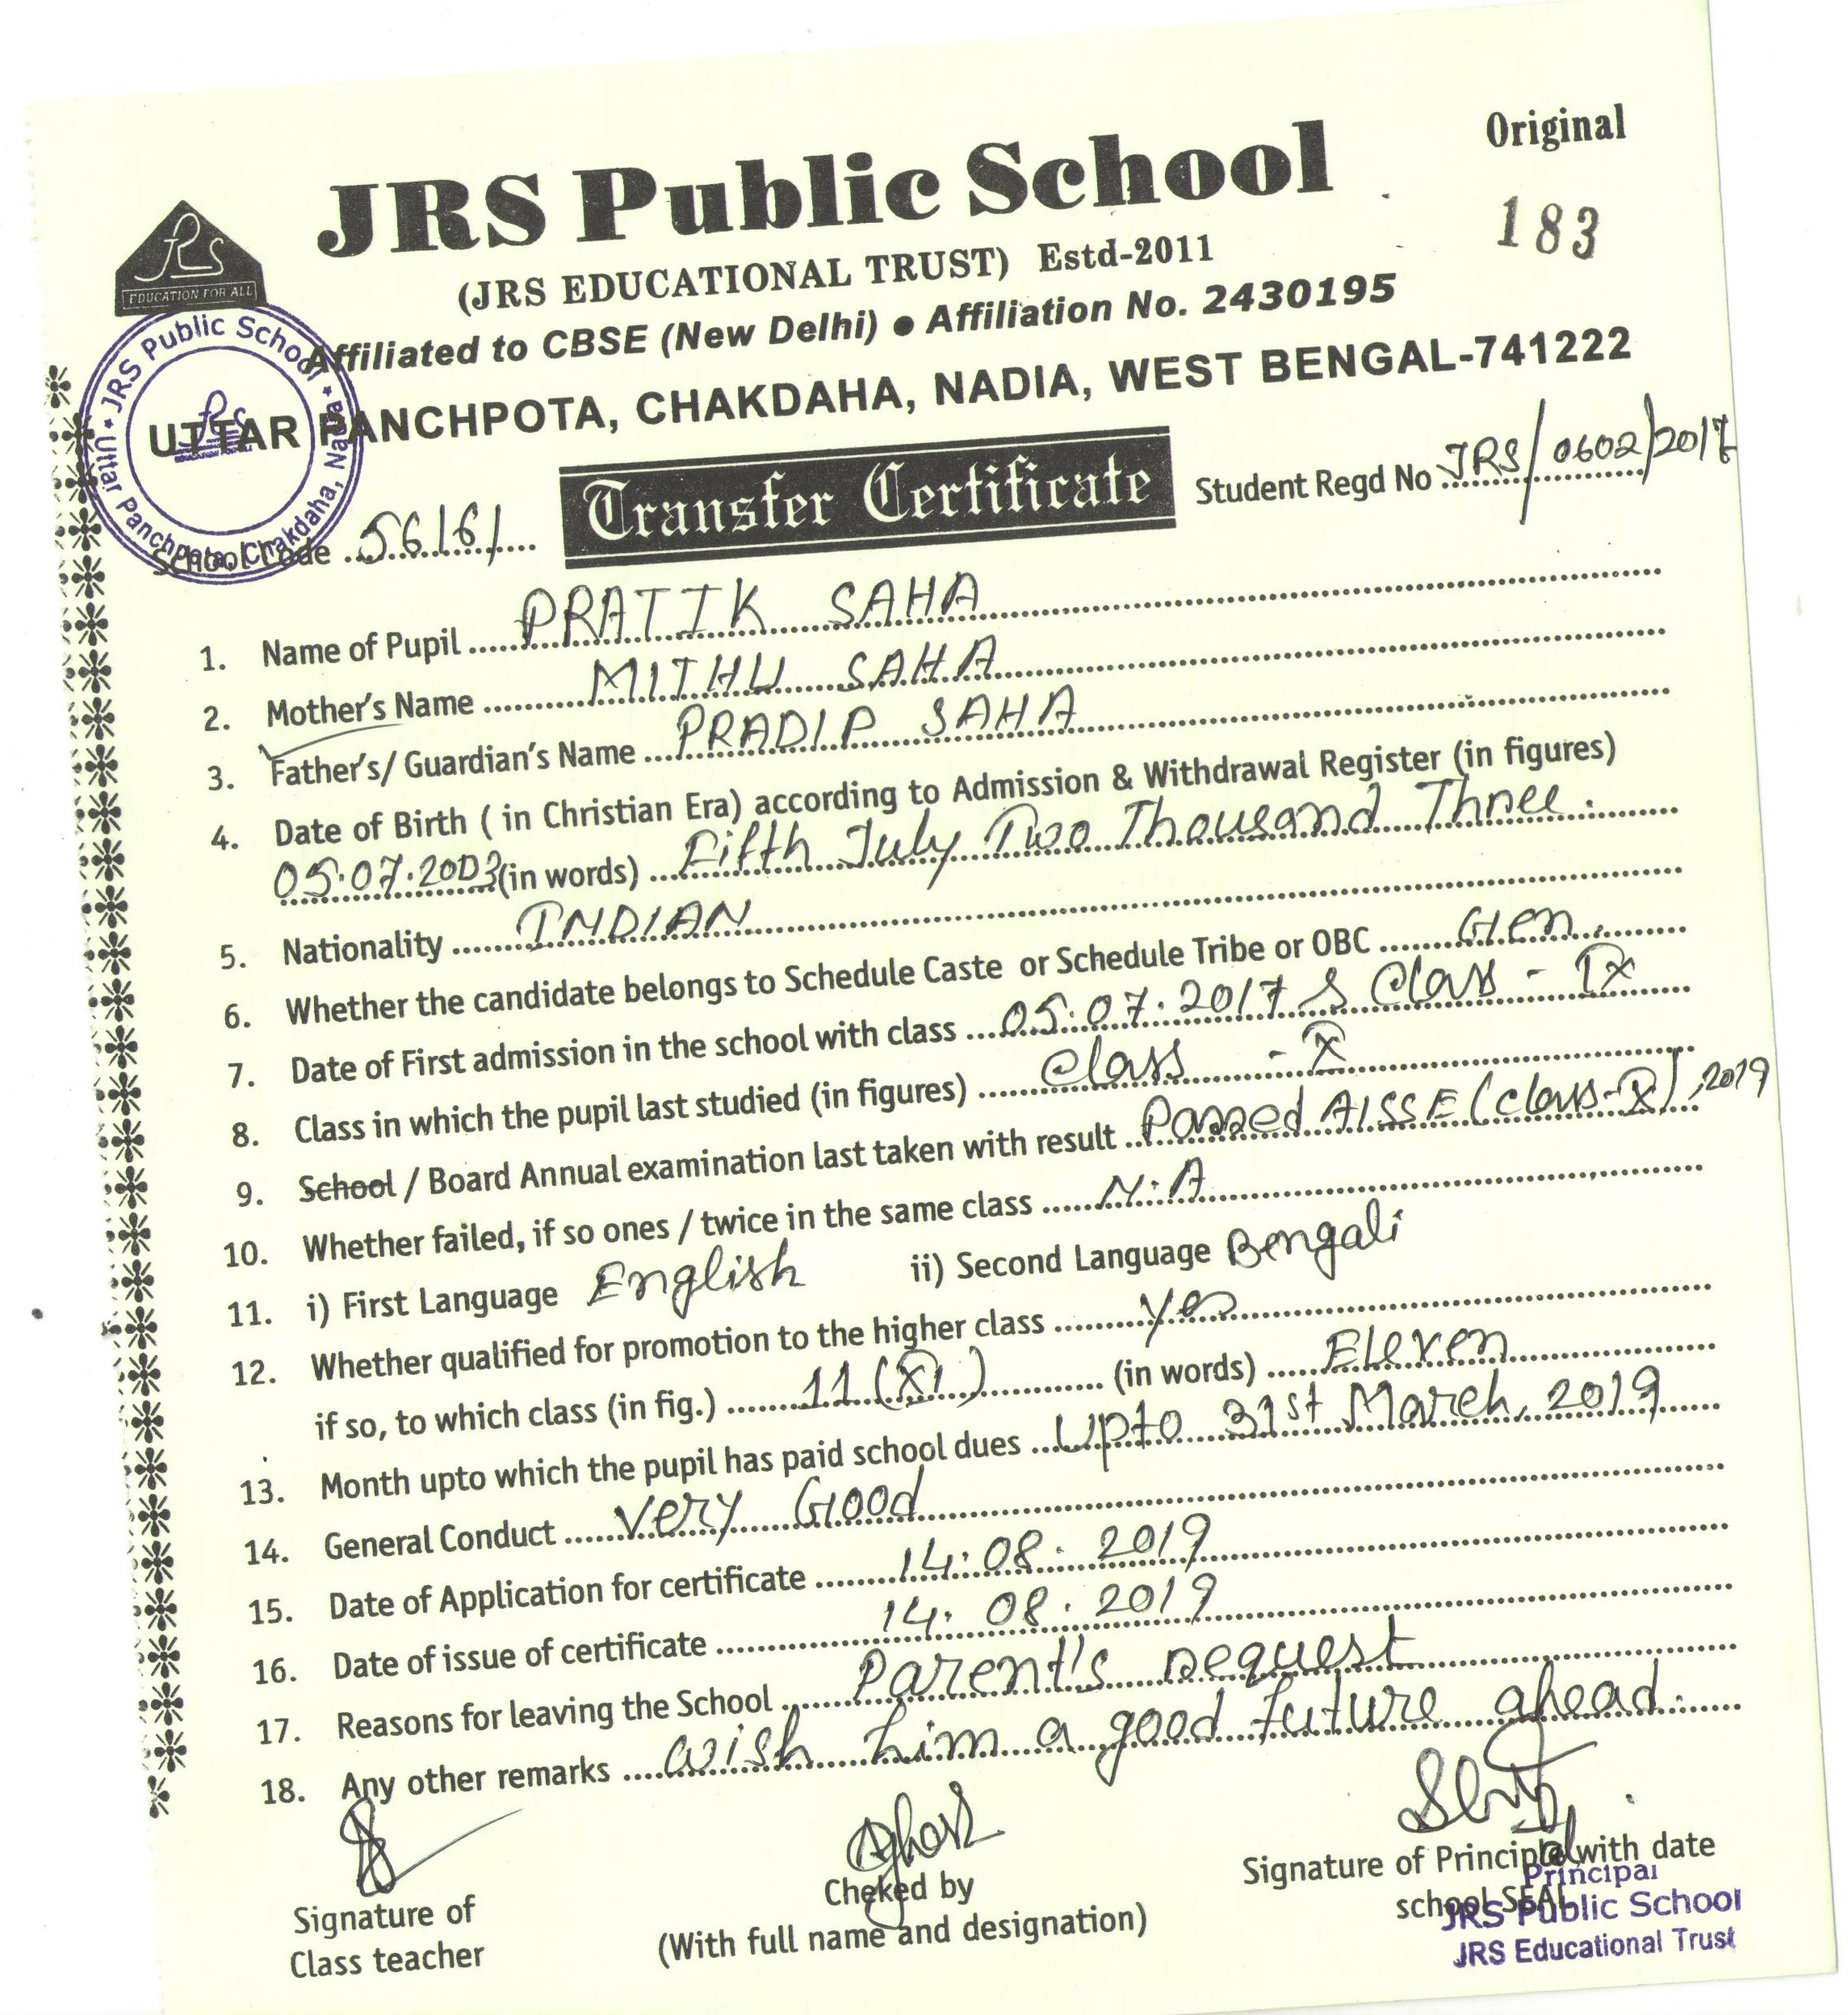 Original
JRS Public School
183
(JRS EDUCATIONAL TRUST) Estd-2011
JRS
EDUCATION FOR ALL
Affiliated to CBSE (New Delhi) ● Affiliation No. 2430195
UTTAR PANCHPOTA, CHAKDAHA, NADIA, WEST BENGAL-741222
JRS Public School * Uttar Panchpota, Chakdaha, Nadia *
Transfer Certificate
Student Regd No JRS/0602/2017
School Code 56161
1. Name of Pupil PRATIK SAHA
2. Mother's Name MITHU SAHA
3. Father's/ Guardian's Name PRADIP SAHA
4. Date of Birth ( in Christian Era) according to Admission & Withdrawal Register (in figures)
05.07.2003 (in words) Fifth July Two Thousand Three.
5. Nationality INDIAN
6. Whether the candidate belongs to Schedule Caste or Schedule Tribe or OBC Gen.
7. Date of First admission in the school with class 05.07.2017 & Class - IX
8. Class in which the pupil last studied (in figures) Class - X
9. School / Board Annual examination last taken with result Passed AISSE (class-X), 2019
10. Whether failed, if so ones / twice in the same class N.A
11. i) First Language English ii) Second Language Bengali
12. Whether qualified for promotion to the higher class Yes
if so, to which class (in fig.) 11 (XI) (in words) Eleven
13. Month upto which the pupil has paid school dues Upto 31st March, 2019
14. General Conduct Very Good
15. Date of Application for certificate 14.08.2019
16. Date of issue of certificate 14.08.2019
17. Reasons for leaving the School Parent's request
18. Any other remarks wish him a good future ahead.
Signature of
Class teacher
Cheked by
(With full name and designation)
Signature of Principal with date
school SEAL
Principal
JRS Public School
JRS Educational Trust